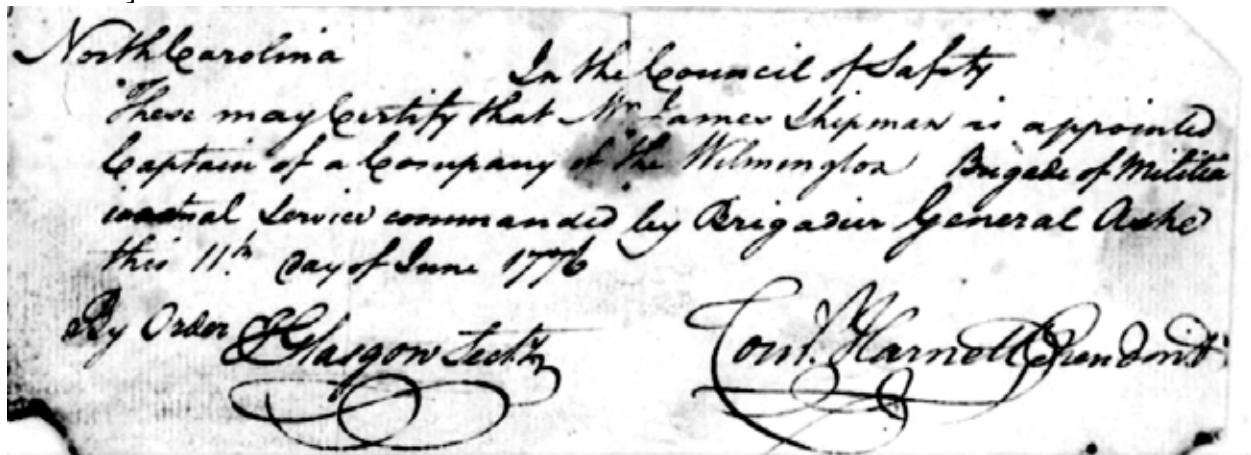 North Carolina
In the Council of Safety
These may Certify that Mr. James Shipman is appointed
Captain of a Company of the Wilmington Brigade of Militia
in actual Service commanded by Brigadier General Ashe
this 11th day of June 1776
By Order J Glasgow Secty
Corn. Harnett Presedent